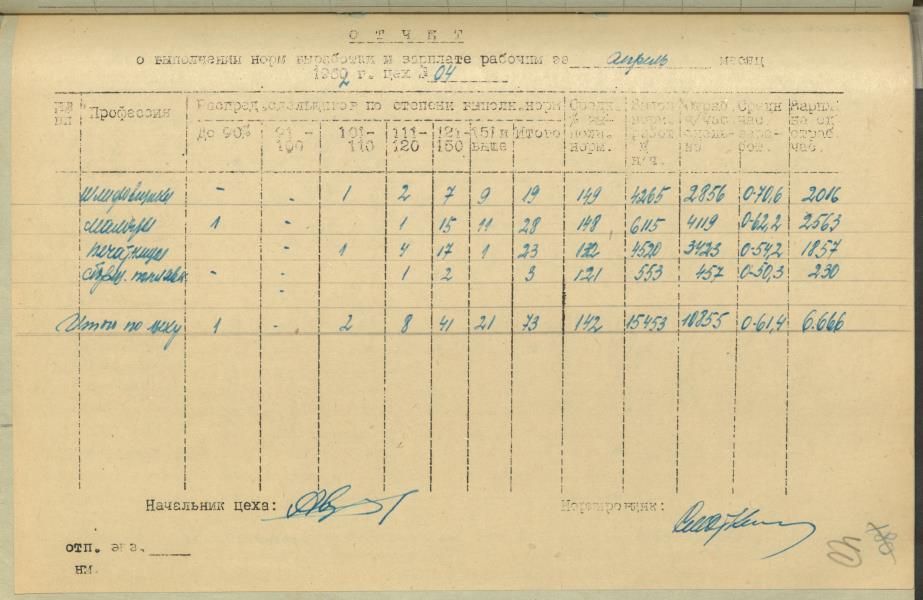 О Т Ч Е Т
о выполнении норм выработки и зарплате рабочим за апрель месяц
1962 г. цех № 04
Профессия Распред. сдельщиков по степени выполн. норм Средн. % выполн. норм. Зарпл. на от раб. час.
До 90% 91-100 101-110 111-120 121-150 151 и выше Итого
шлифовщики - - 1 2 7 9 19 149 4265 2856 0-70,6 2016
маляры 1 - 1 15 11 28 148 6115 4119 0-62,2 2563
печатницы - 1 4 17 1 23 132 4520 3423 0-54,2 1857
- - 1 2 3 121 553 457 0-50,3 230
-
Итого по цеху 1 - 2 8 41 21 73 142 15453 10855 0-61,4 6.666
Начальник цеха:
Нормировщик:
отп. экз.
нм.